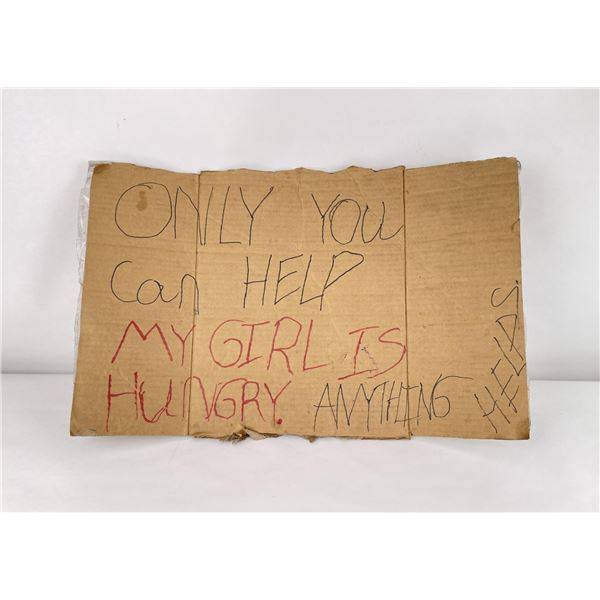 ONLY YOU
Can HELP
MY GIRL IS
HUNGRY. ANYTHING
HELPS.